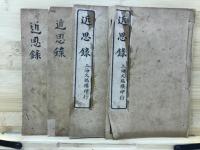 近思錄
近思錄
近思錄
上海文瑞樓印行
近思錄
上海文瑞樓印行